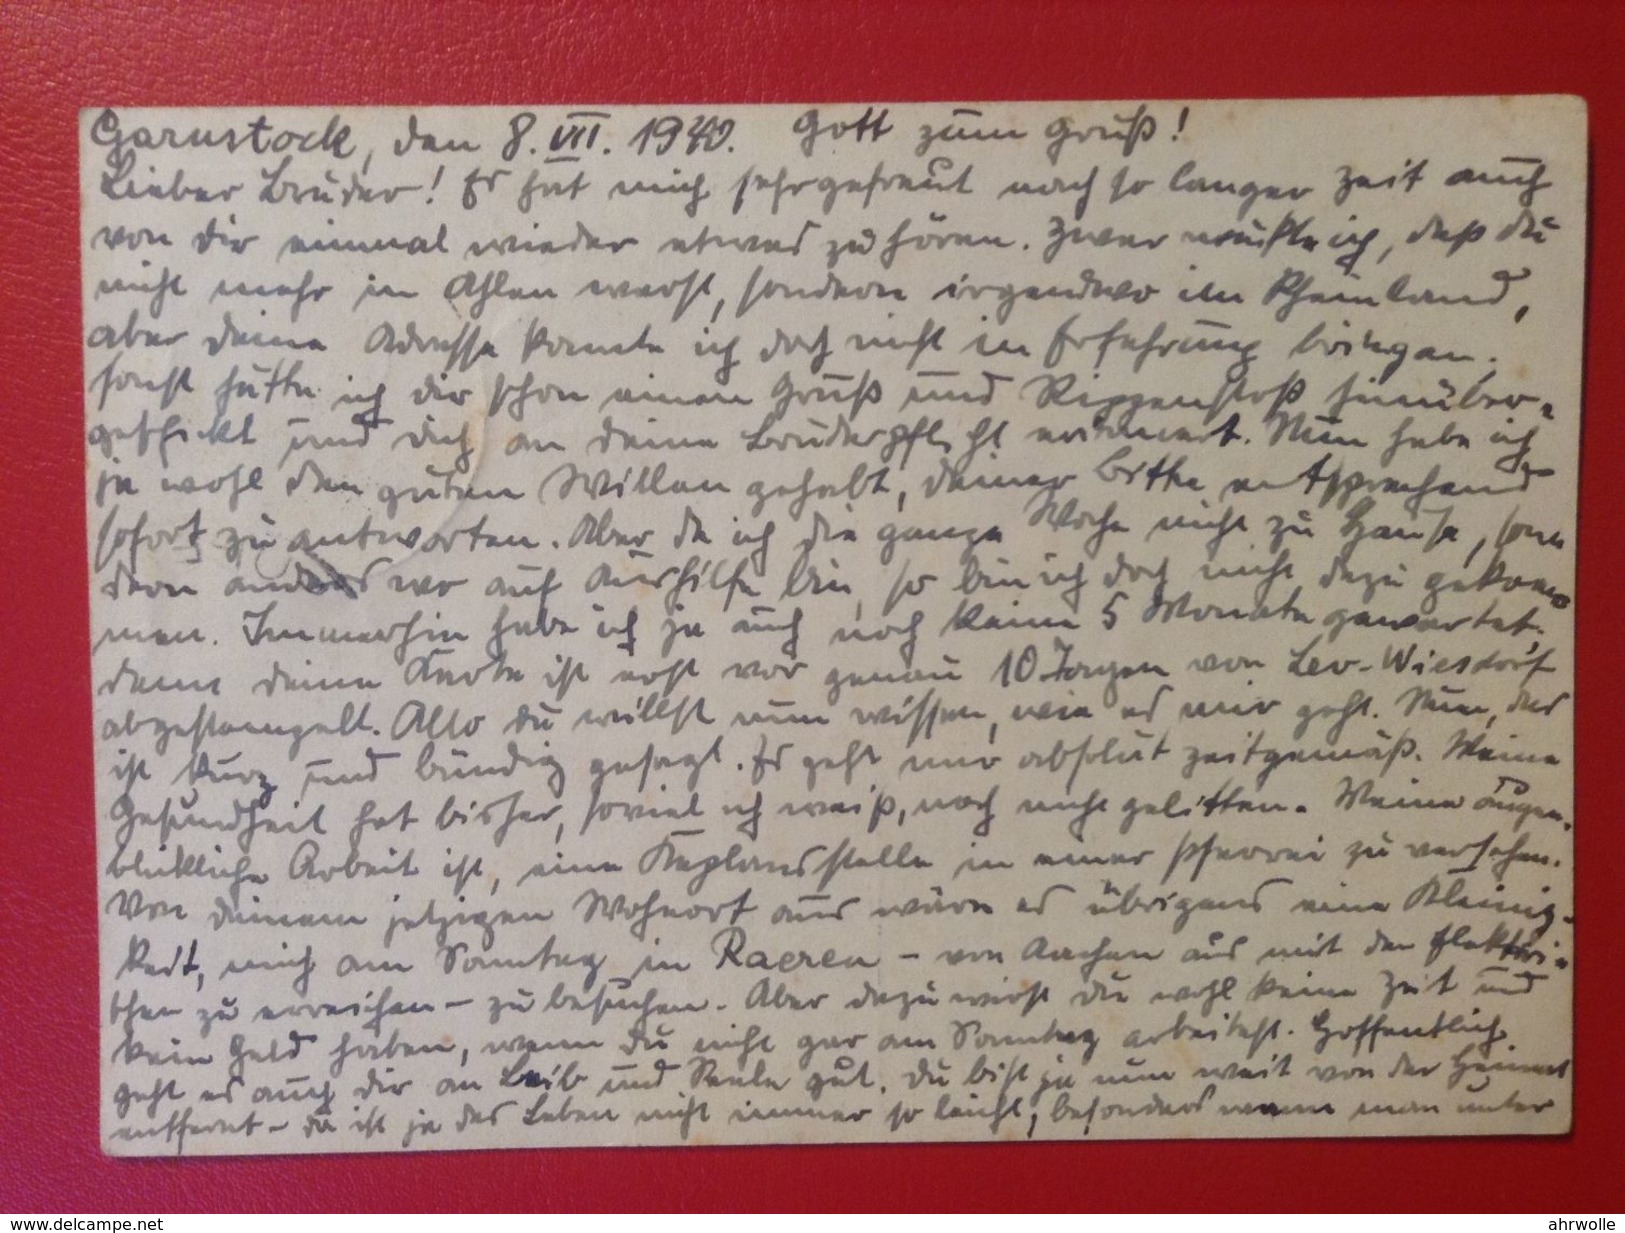 Garnstock, den 8. VII. 1940. Gott zum Gruß!
Lieber Bruder! Es hat mich sehr gefreut nach so langer Zeit auch
von dir einmal wieder etwas zu hören. Zwar wußte ich, daß du
nicht mehr in Ahlen warst, sondern irgendwo im Rheinland,
aber deine Adresse konnte ich doch nicht in Erfahrung bringen,
sonst hätte ich dir schon einen Gruß und Rippenstoß hinüber-
geschickt und dich an deine Bruderpflicht erinnert. Nun habe ich
ja wohl den guten Willen gehabt, deiner Bitte entsprechend
sofort zu antworten. Aber da ich die ganze Woche nicht zu Hause, son-
dern anderswo auf Aushilfe bin, so bin ich doch nicht dazu gekom-
men. Immerhin habe ich ja auch noch keine 5 Monate gewartet
denn deine Karte ist erst vor genau 10 Tagen von Lev-Wiesdorf
abgestempelt. Also du willst nun wissen, wie es mir geht. Nun, das
ist kurz und bündig gesagt. Es geht mir absolut zeitgemäß. Meine
Gesundheit hat bisher, soviel ich weiß, noch nicht gelitten. Meine augen-
blickliche Arbeit ist, eine Kaplansstelle in einer Pfarrei zu versehen.
Von deinem jetzigen Wohnort aus wäre es übrigens eine Kleinig-
keit, mich am Sonntag in Raeren – von Aachen aus mit der Elektri-
schen zu erreichen – zu besuchen. Aber dazu wirst du wohl keine Zeit und
kein Geld haben, wenn du nicht gar am Sonntag arbeitest. Hoffentlich
geht es auch dir an Leib und Seele gut. Du bist ja nun weit von der Heimat
entfernt – da ist ja das Leben nicht immer so leicht, besonders wenn man unter
www.delcampe.net
ahrwolle